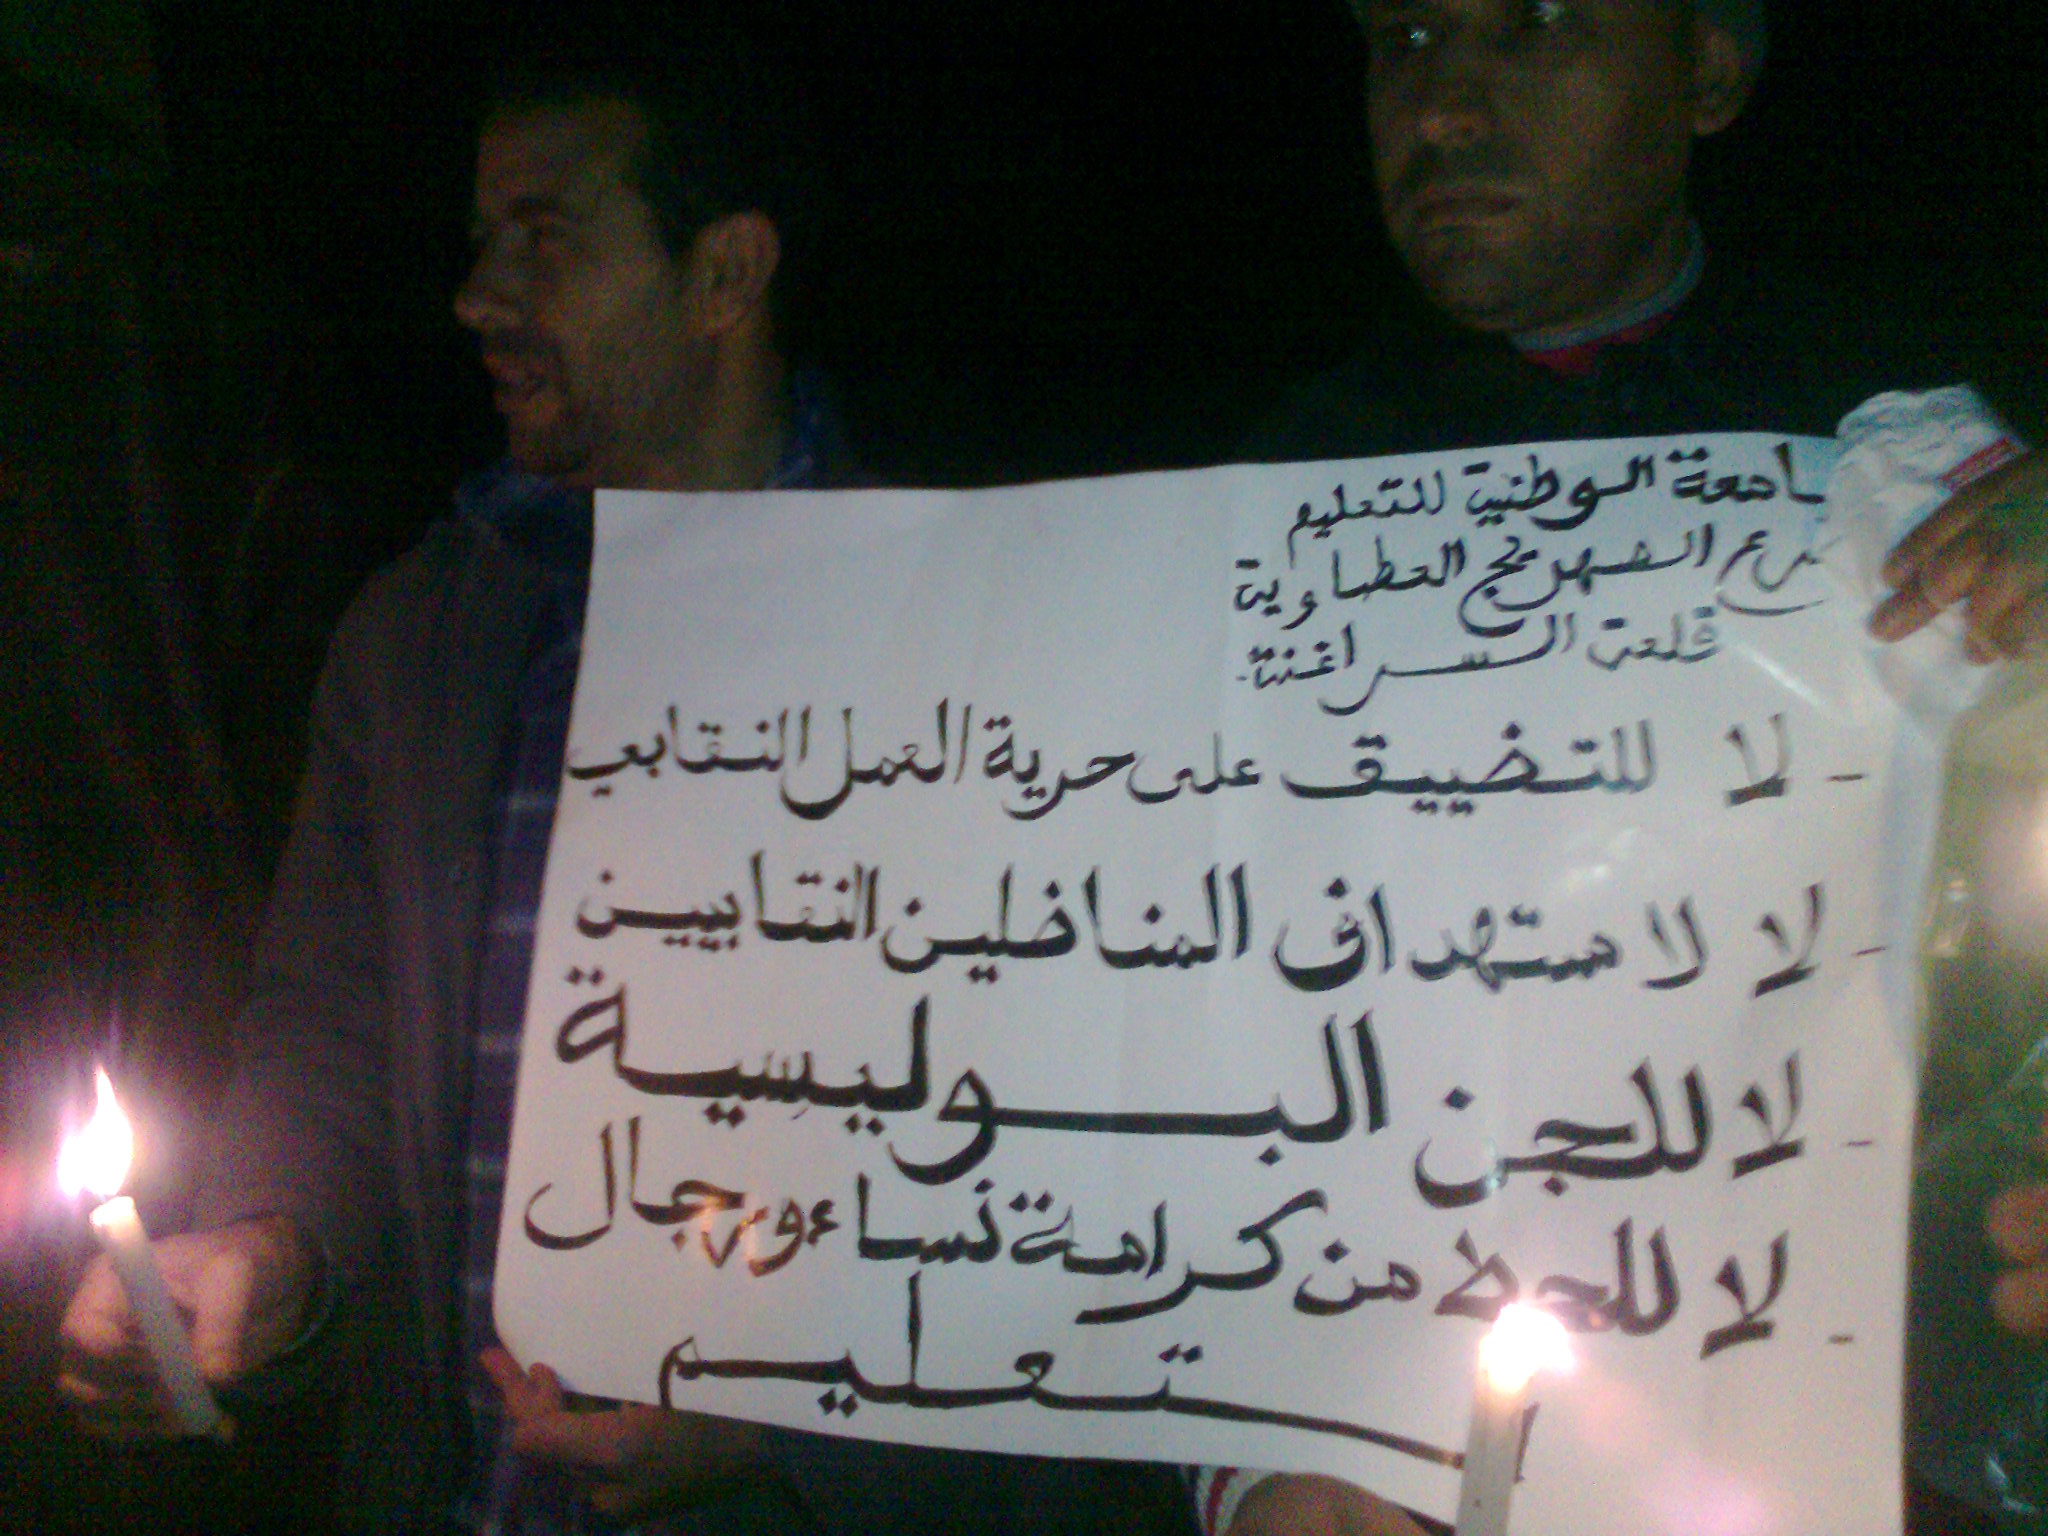 جامعة الوطنية للتعليم
فرع الصهريج العطاوية
قلعة السراغنة
- لا للتضييق على حرية العمل النقابي
- لا لاستهداف المناضلين النقابيين
- لا للجن البوليسية
- لا للحط من كرامة نساء ورجال
التعليم